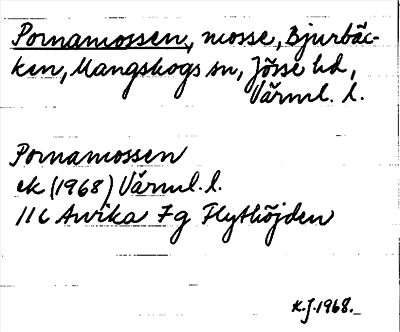 Pornamossen, mosse, Bjurbäc-
ken, Mangskogs sn, Jösse hd,
Värml. l.
Pornamossen
ek (1968) Värml. l.
11C Arvika 7g Flythöjden
K.J. 1968.